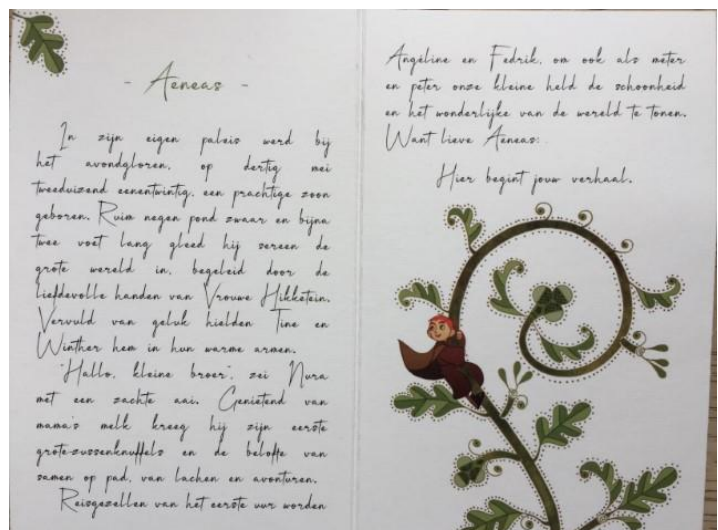 - Aeneas -
In zijn eigen paleis werd bij
het avondgloren, op dertig mei
tweeduizend eenentwintig, een prachtige zoon
geboren. Ruim negen pond zwaar en bijna
twee voet lang gleed hij sereen de
grote wereld in, begeleid door de
liefdevolle handen van Vrouwe Hikketein.
Vervuld van geluk hielden Tine en
Winther hem in hun warme armen.
"Hallo, kleine broer", zei Nura
met een zachte aai. Genietend van
mama's melk kreeg hij zijn eerste
grote-zussenknuffels en de belofte van
samen op pad, van lachen en avonturen.
Reisgezellen van het eerste uur worden
Angéline en Fedrik, om ook als meter
en peter onze kleine held de schoonheid
en het wonderlijke van de wereld te tonen.
Want lieve Aeneas:
Hier begint jouw verhaal.